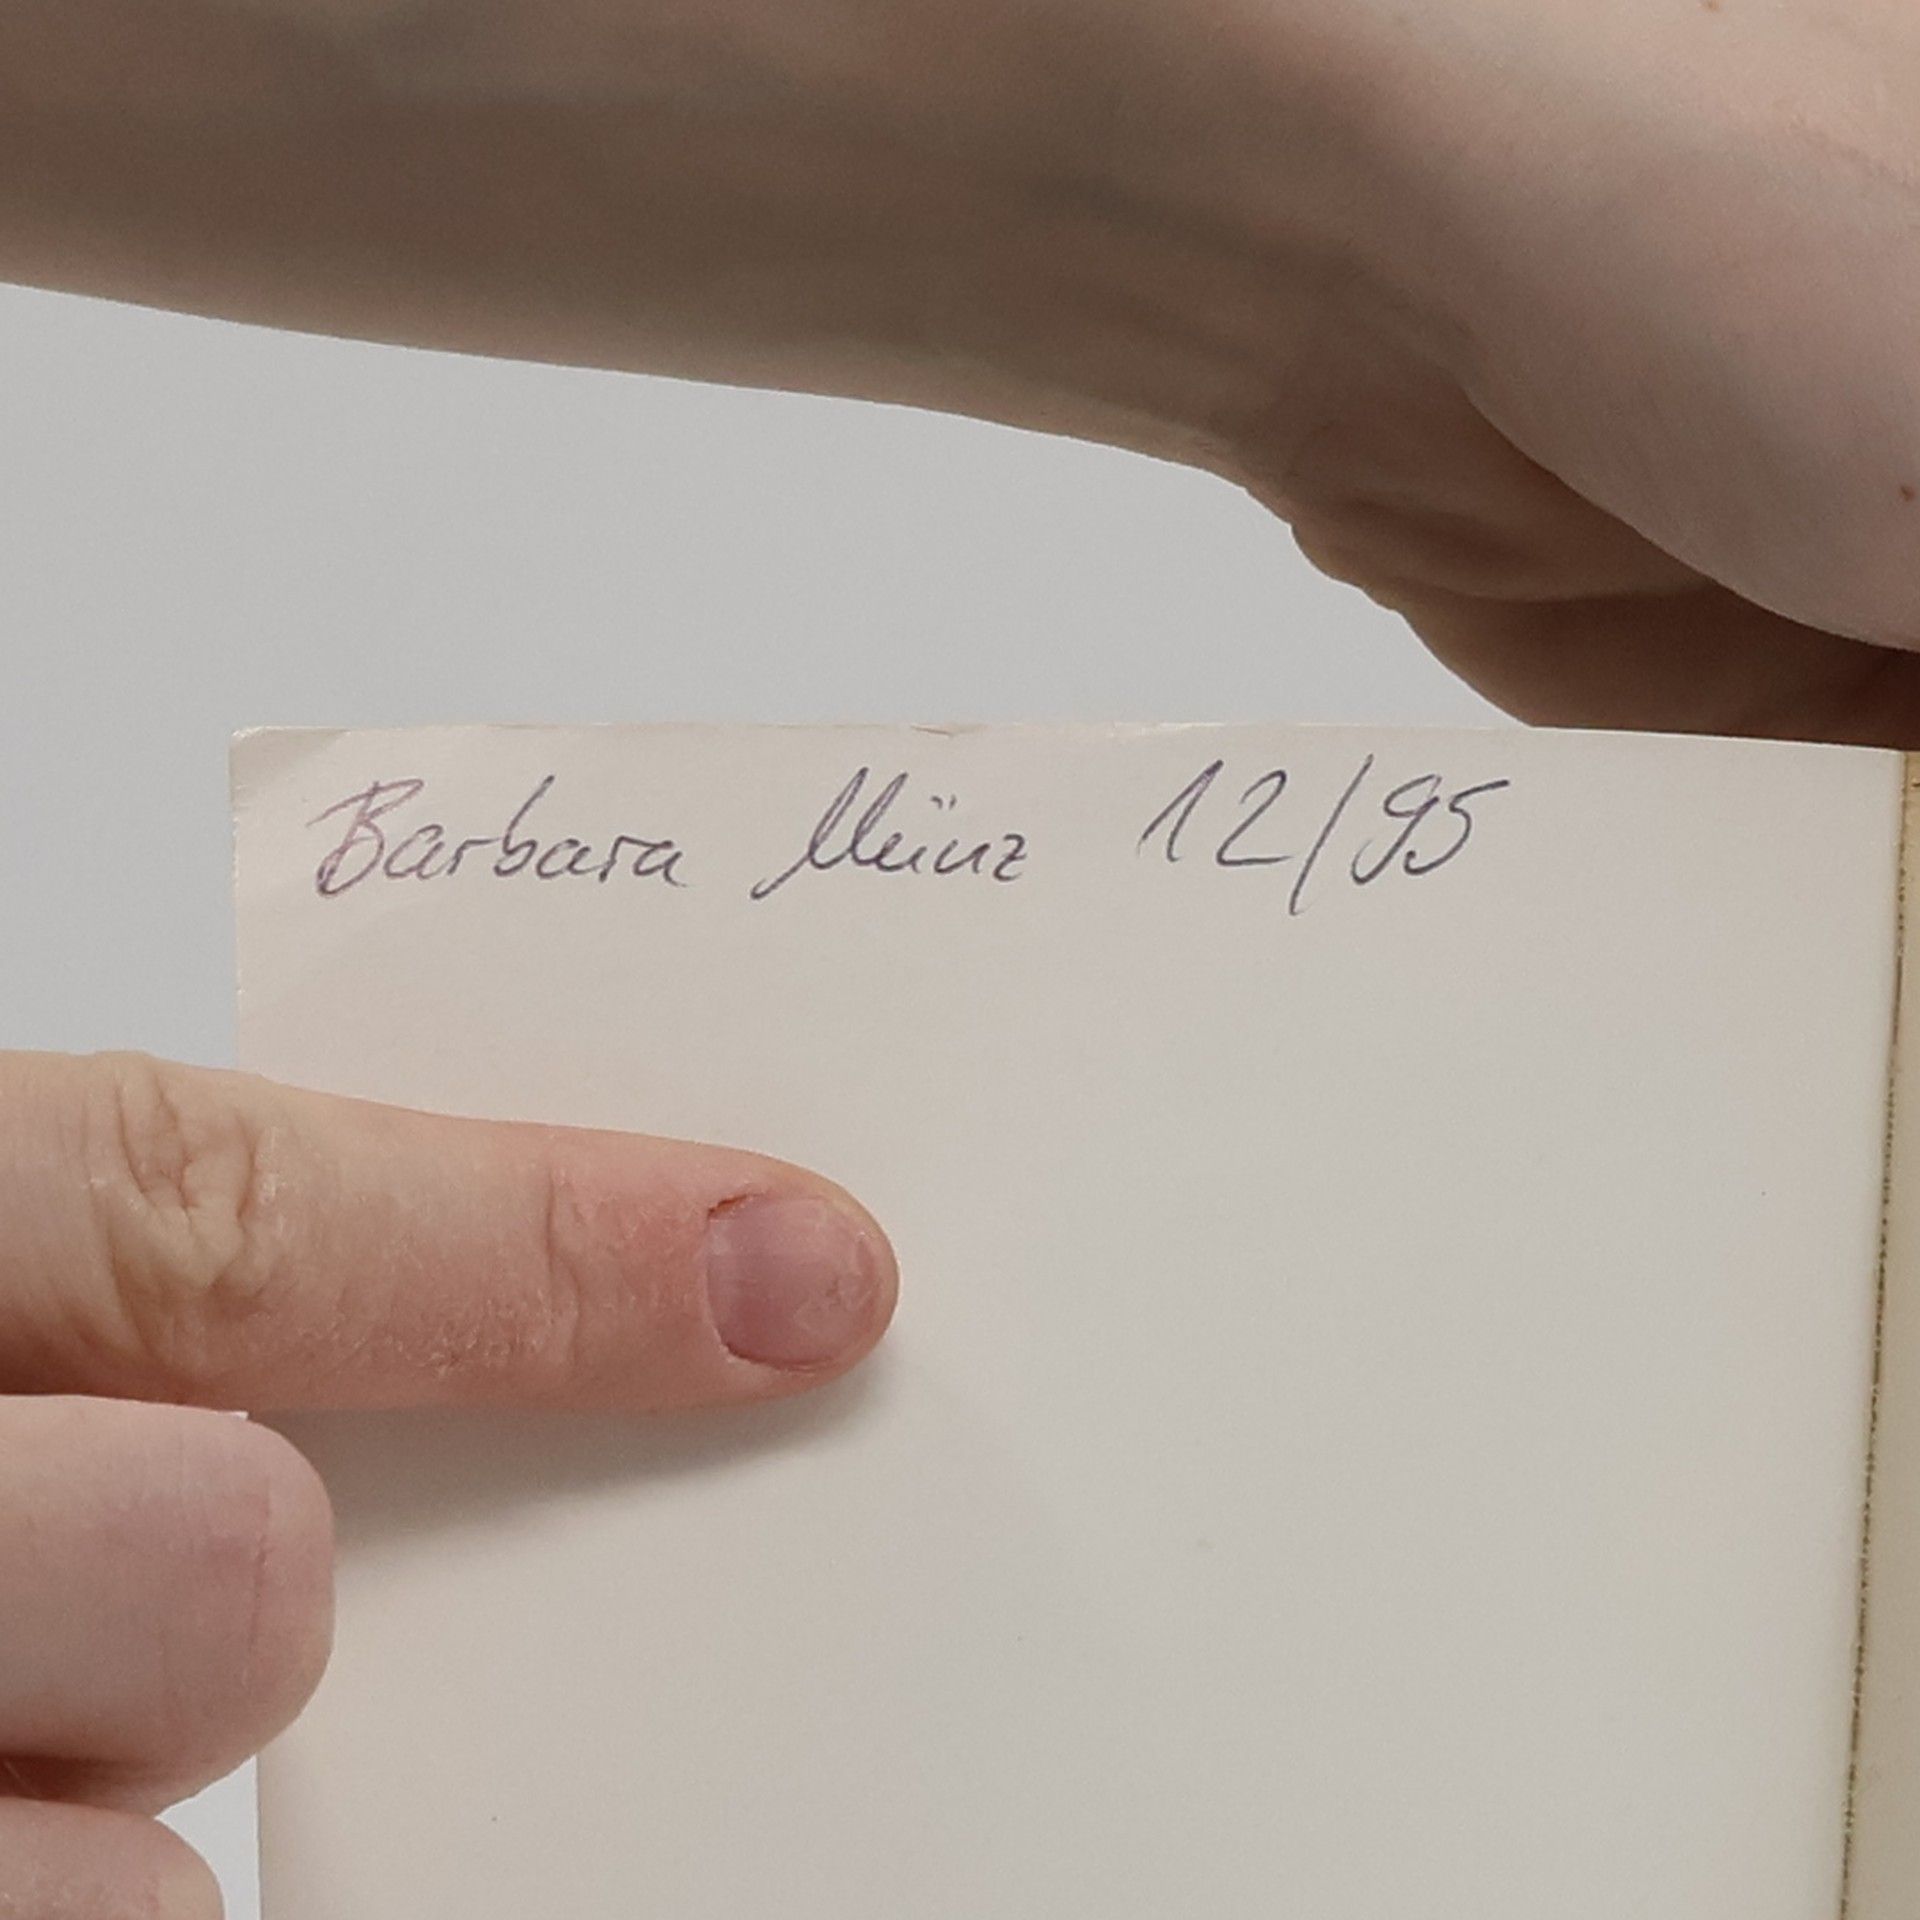 Barbara Münz 12/95